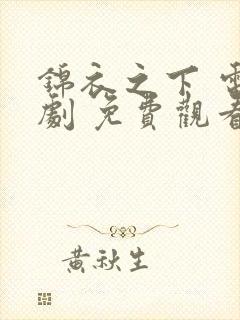 錦衣之下 電
劇 免費觀看
黃秋生